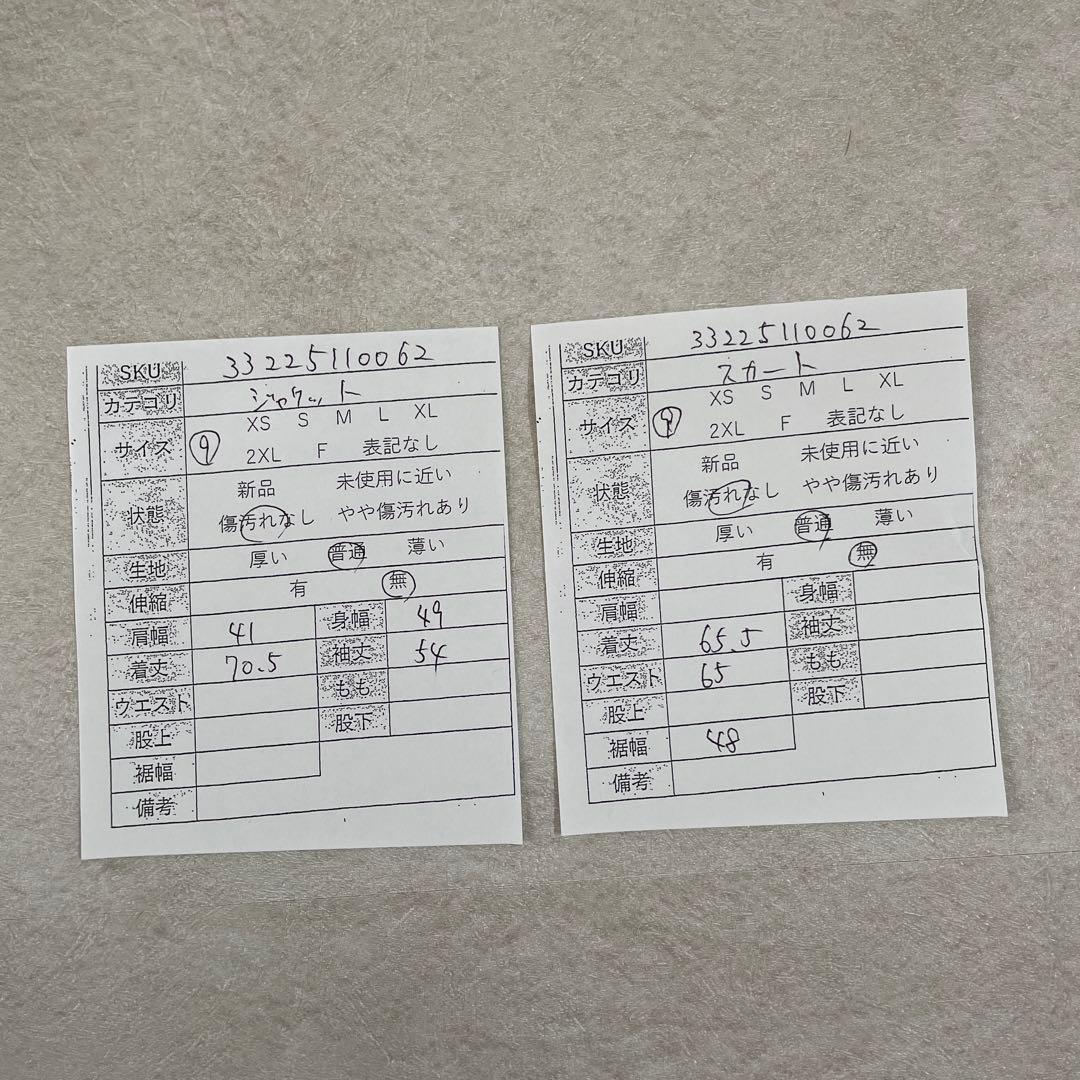 SKU 33225110062
カテゴリ ジャケット
サイズ 9 XS S M L XL
2XL F 表記なし
状態 新品 未使用に近い
傷汚れなし やや傷汚れあり
生地 厚い 普通 薄い
伸縮 有 無
肩幅 41 身幅 49
着丈 70.5 袖丈 54
ウエスト もも
股上 股下
裾幅
備考
SKU 33225110062
カテゴリ スカート
サイズ 9 XS S M L XL
2XL F 表記なし
状態 新品 未使用に近い
傷汚れなし やや傷汚れあり
生地 厚い 普通 薄い
伸縮 有 無
肩幅 身幅
着丈 65.5 袖丈
ウエスト 65 もも
股上 股下
裾幅 48
備考